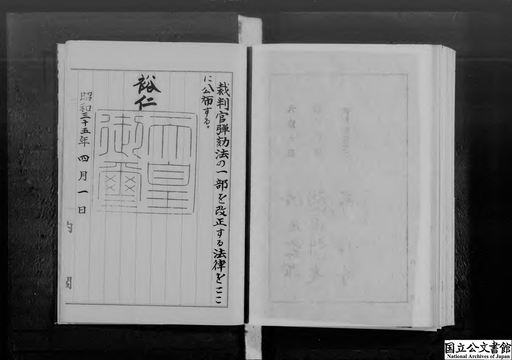 裁判官弾劾法の一部を改正する法律をここ
に公布する。
裕仁
天皇
御璽
昭和三十五年 四月一日
内閣
国立公文書館
National Archives of Japan